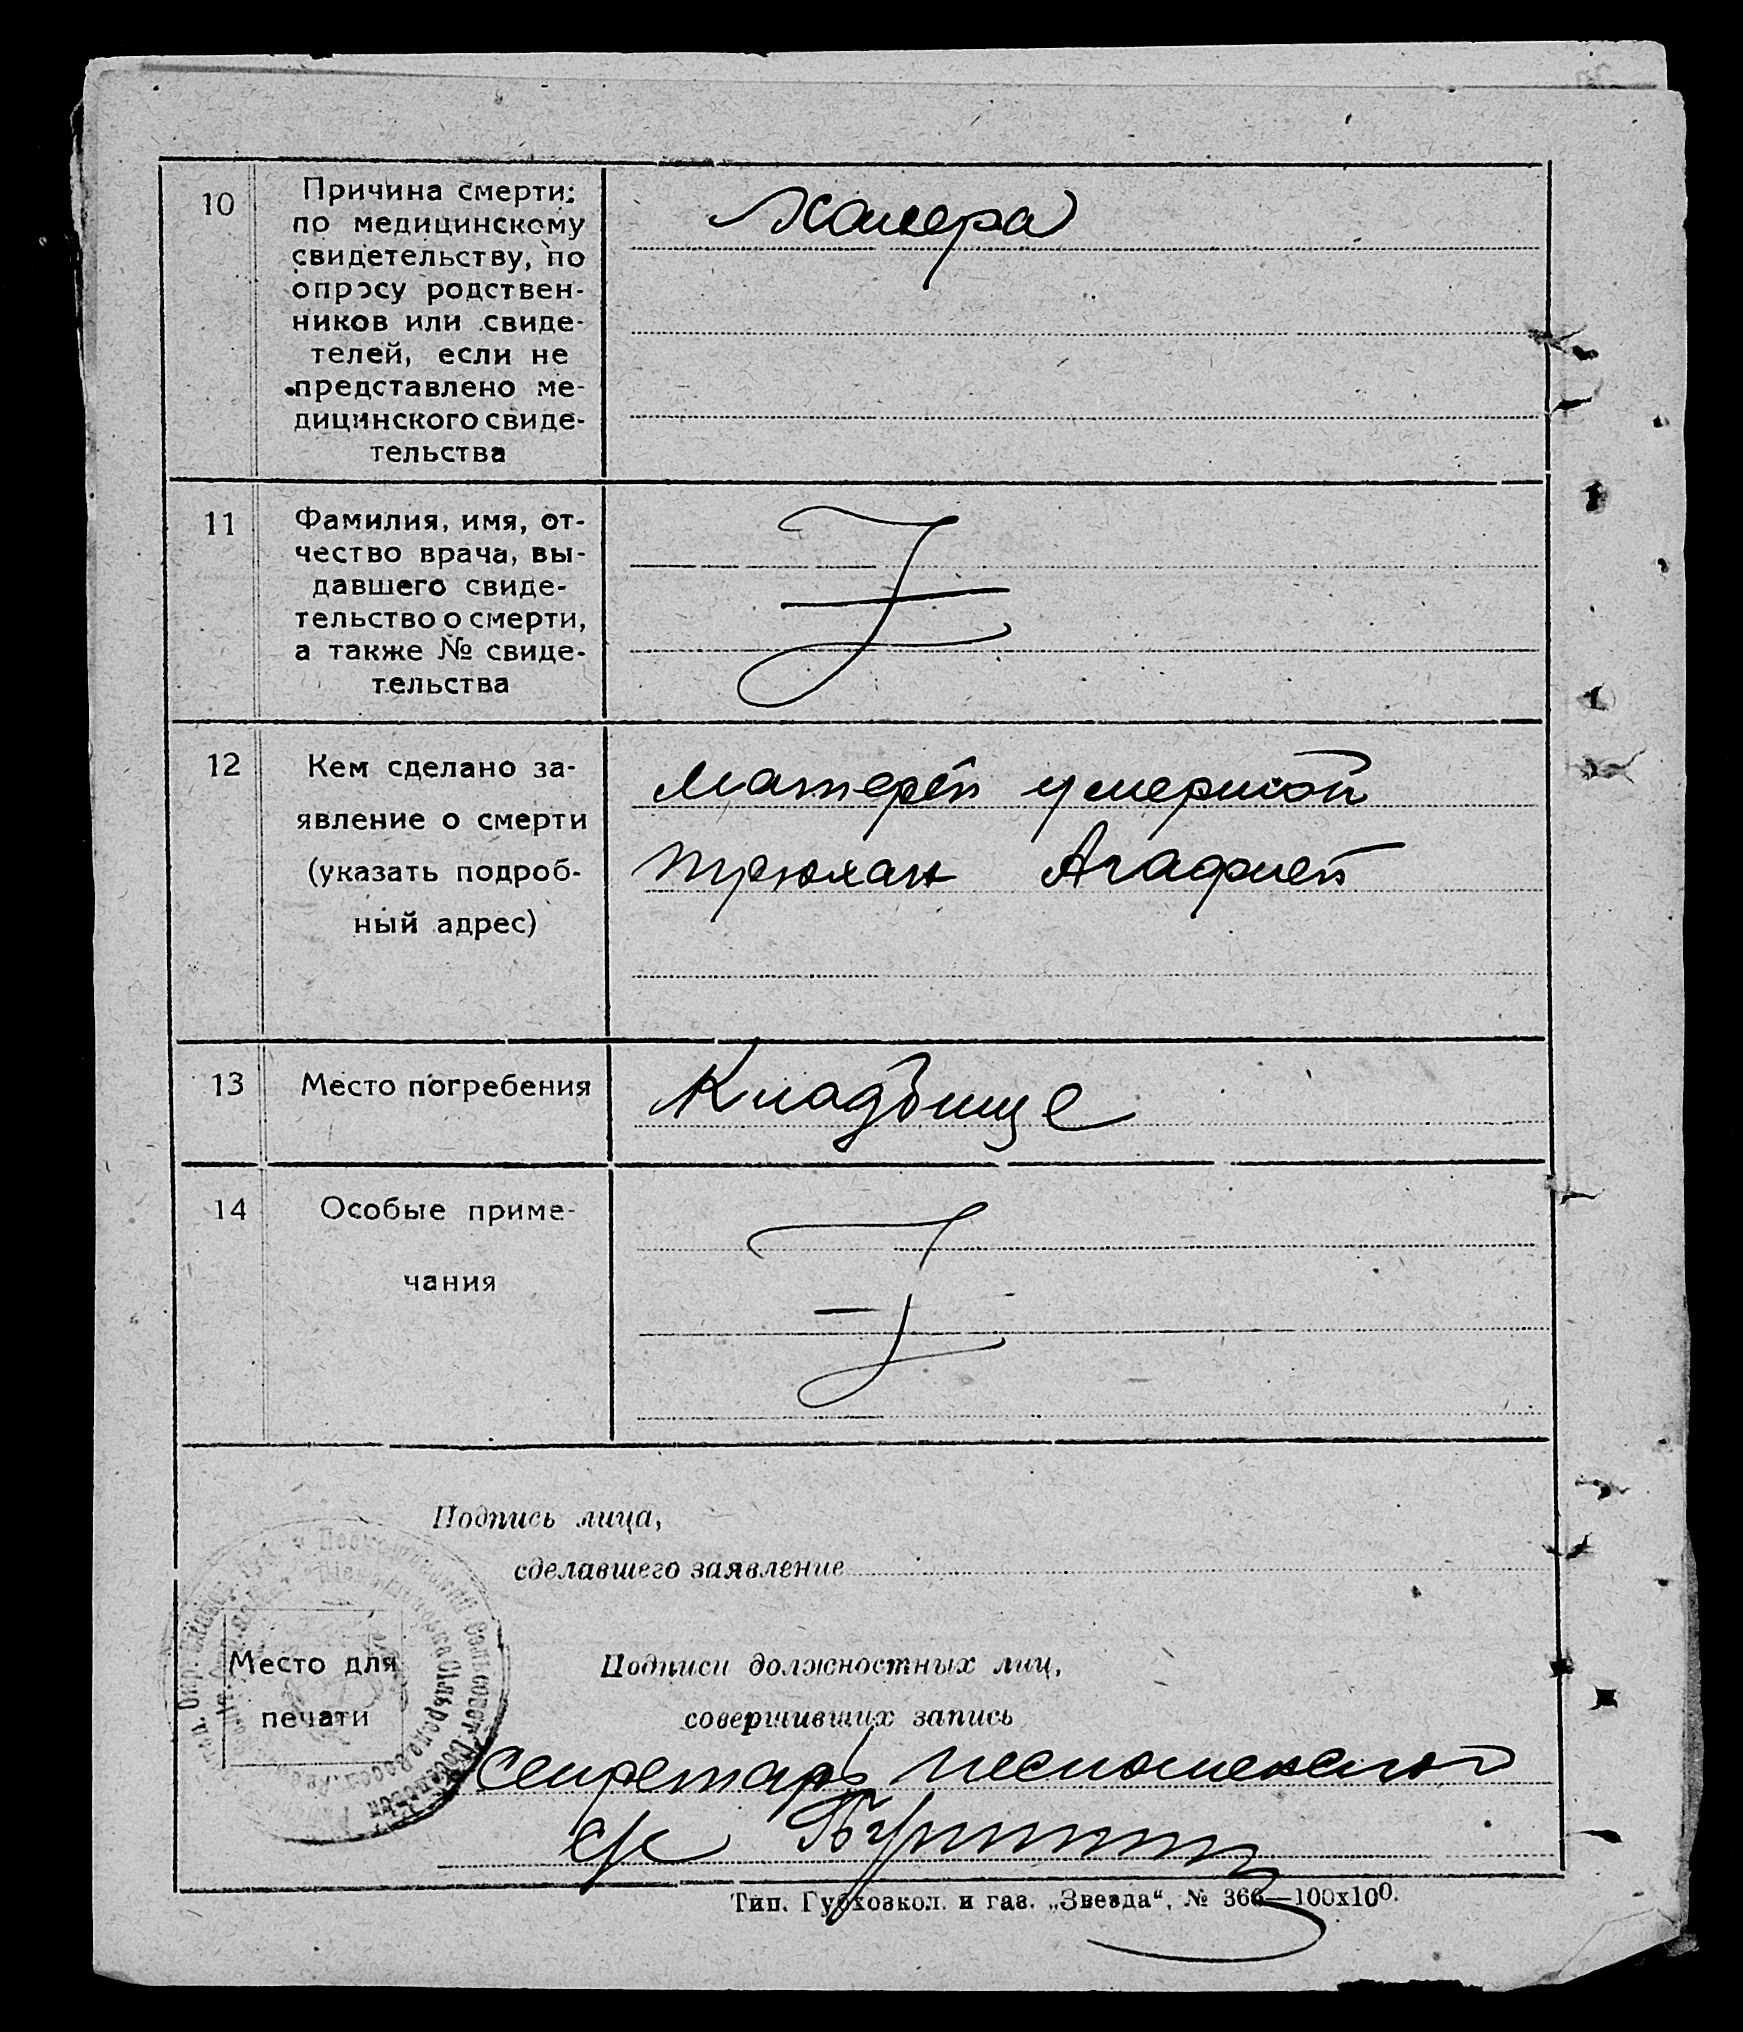 10
Причина смерти:
по медицинскому
свидетельству, по
опросу родствен-
ников или свиде-
телей, если не
представлено ме-
дицинского свиде-
тельства
Холера
11
Фамилия, имя, от-
чество врача, вы-
давшего свиде-
тельство о смерти,
а также № свиде-
тельства
12
Кем сделано за-
явление о смерти
(указать подроб-
ный адрес)
Матерей умершой
Трюхан Агафией
13
Место погребения
Кладбище
14
Особые приме-
чания
Подпись лица,
сделавшего заявление
Место для
печати
Подписи должностных лиц,
совершивших запись
Секретарь
с/с
Тип. Губхозкол. и газ. „Звезда“, № 366—100х100.